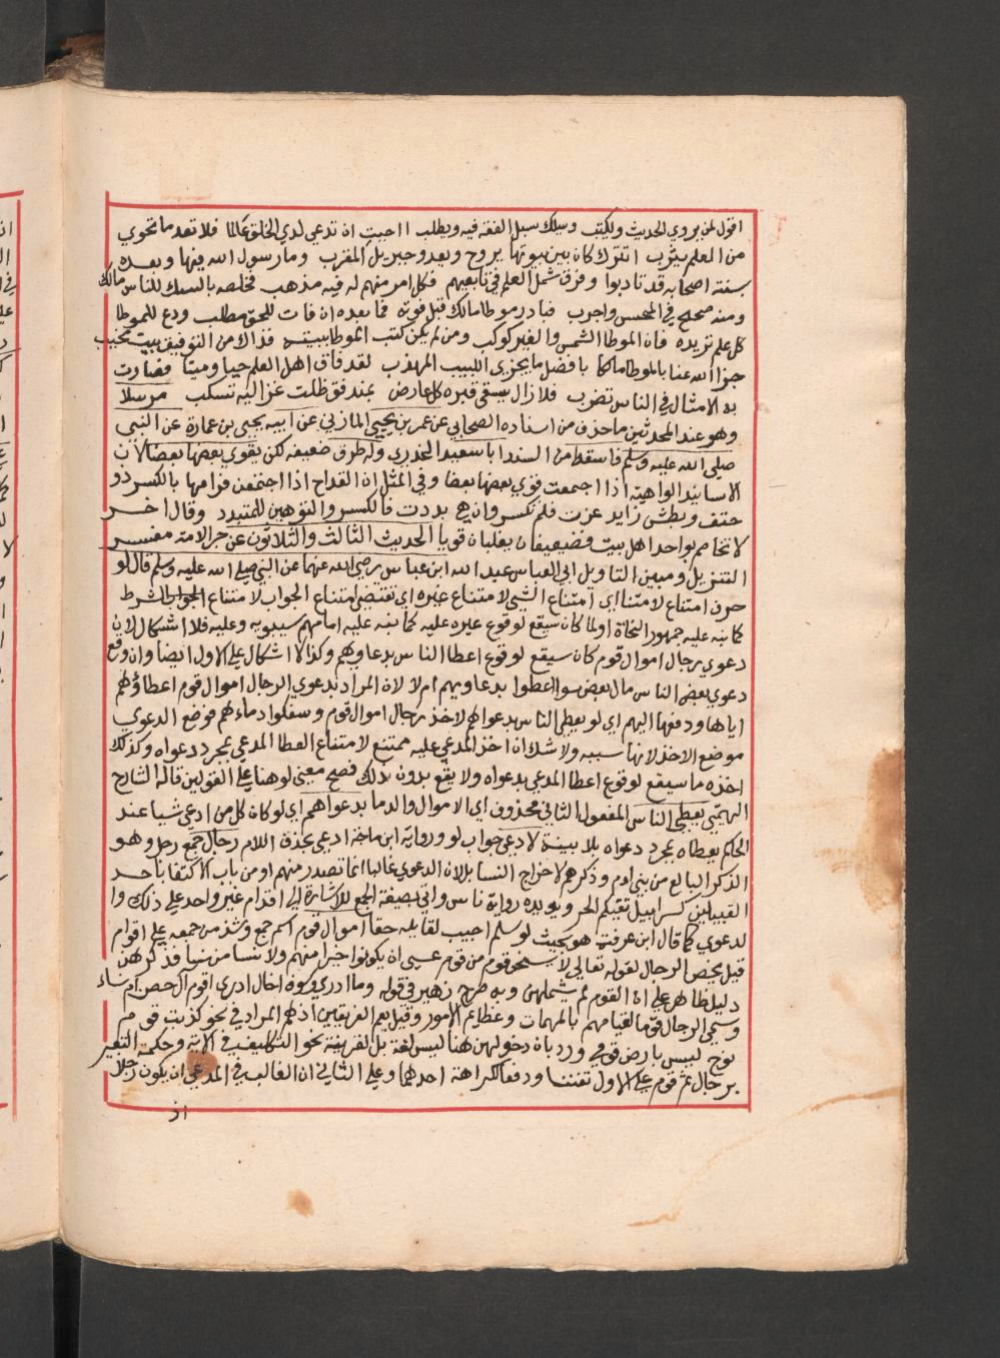 اقول لمن يروي الحديث ويكتب ويسلك سبل الفقه فيه ويطلب ااحببت ان تدعي لدي الخلق عالما فلا تعد ما تحوي
من العلم يثرب اتترك كان بين بيوتها يروح ويغدو جبريل المقرب ومات رسول الله فيها وبعده
بسنته اصحابه قد تادبوا وفرق شمل العلم في تابعيهم فكل امرء منهم له فيه مذهب فخلصه بالسبك للناس مالك
ومنه صحيح في المحسن واجرب فبادر موطا مالك قبل فوته فما بعده ان فات للحق مطلب ودع للموطا
كل علم تريده فان الموطا الشمس والغير كوكب ومن لم يكن كتب الموطا ببيته فذاك من التوفيق بيت مخيب
جزا الله عنا بالموطا مالكا بافضل ما يجزي اللبيب المهذب لقد فاق اهل العلم حيا وميتا فصارت
به الامثال في الناس تضرب فلا زال يسقي قبره كل عارض بمندفق ظلت عزاليه تسكب مرسلا
وهو عند المحدثين ما حذف من اسناده الصحابي عن عمر بن يحيي المازني عن ابيه يحيي بن عمارة عن النبي
صلي الله عليه وسلم فاسقط من السند ابا سعيد الخدري وله طرق ضعيفه لكن يقوي بعضها بعضا لان
الاسانيد الواهيه اذا اجتمعت قوي بعضها بعضا وفي المثل ان القداح اذا اجتمعن فرامها بالكسر ذو
حتف وبطش زايد عزت فلم تكسر وان هي بددت فالكسر والتوهين للمتبدد وقال اخر
لا تخاصم بواحد اهل بيت فضعيفان يغلبان قويا الحديث الثالث والثلاثون عن حبر الامة مفسر
التنزيل ومبين التاويل ابي العباس عبد الله ابن عباس رضي الله عنهما عن النبي صلي الله عليه وسلم قال لو
حرف امتناع لامتناع اي امتناع الشي لامتناع غيره اي تقتضي امتناع الجواب لامتناع الشرط
كما نبه عليه جمهور النحاة او لما كان سيقع لوقوع غيره عليه كما نبه عليه امامهم سيبويه وعليه فلا اشكال لان
دعوي رجال اموال قوم كان سيقع لوقوع اعطا الناس بدعاويهم وكذا لا اشكال علي الاول ايضا وان وقع
دعوي بعض الناس مال بعض سوا اعطوا بدعاويهم ام لا لان المراد بدعوي الرجال اموال قوم اعطاؤهم
اياها ودفعها اليهم اي لو يعطي الناس بدعواهم لاخذ رجال اموال قوم وسفكوا دماءهم فوضع الدعوي
موضع الاخذ لانها سببه ولا شك ان اخذ المدعي عليه ممتنع لامتناع العطا المدعي بمجرد دعواه وكذلك
اخذه ما سيقع لوقوع اعطا المدعي بدعواه ولا يقع بدون ذلك فصح معني لو هنا علي القولين قاله الشارح
الهيتمي يعطي الناس المفعول الثاني محذوف اي الاموال والدما بدعواهم اي لو كان كل من ادعي شيا عند
الحاكم يعطاه بمجرد دعواه بلا بينة لادعي جواب لو ورواية ابن ماجة ادعي بحذف اللام رجال جمع رجل وهو
الذكر البالغ من بني ادم وذكرهم لا خراج النسا بل لان الدعوي غالبا انما تصدر منهم او من باب الاكتفا باحد
القبيلين كسرابيل تقيكم الحر ويويده رواية ناس واتي بصيغة الجمع للاشارة الي اقدام غير واحد علي ذلك وا
لدعوي كما قال ابن عرفة هو بحيث لو سلم اجيب لقايله حقا اموال قوم اسم جمع وشذ من جمعه علي اقوام
قيل يخص الرجال لقوله تعالي لا يسخر قوم من قوم عسي ان يكونوا خيرا منهم ولا نسا من نسا فذكرهن
دليل ظاهر علي ان القوم لم يشملهن وبه طرح زهير في قوله وما ادري وسوف اخال ادري اقوم ال حصن ام نساء
وسمي الرجال قوما لقيامهم بالمهمات وعظايم الامور وقيل يعم الفريقين اذ هم المراد في نحو كذبت قوم
نوح ليس بارض قومي ورد بان دخولهن هنا ليس لغة بل لقرينة نحو التكليف في الاية وحكمة التعبير
برجال ثم قوم علي الاول تفننا ودفعا لكراهة احدهما وعلي الثاني ان الغالب في المدعي ان يكون رجلا
اذ